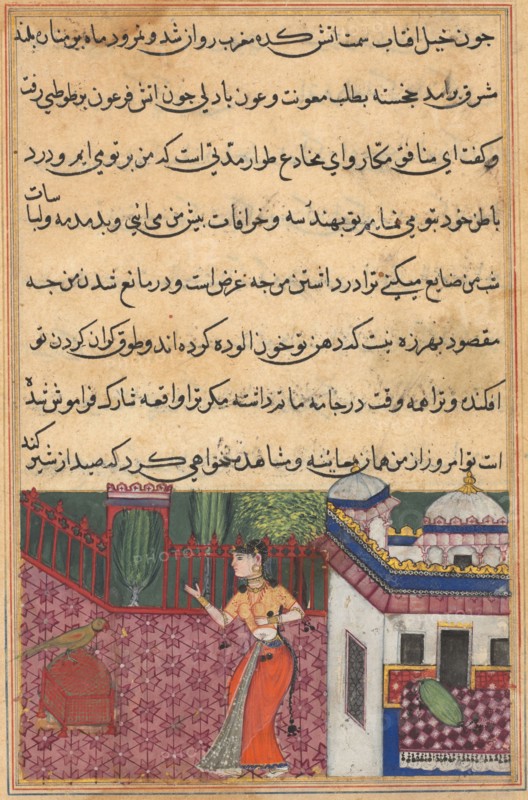 جون خیل افتاب سمت اتش کده مغرب روان شد و نمرود ماه بر مناره
مشرق برامد خجسته بطلب معونت و عون بادلی جون اتش فرعون بر طوطی رفت
و کفت ای منافق مکار و ای مخادع طرار مدتی است که من بر تو می ایم و درد
باطن خود بتو می نمایم تو بهندسه و خرافات بیش من می ائی و بدمدمه ولباسات
شب من ضایع میکنی ترا در داشتن من جه غرض است و در مانع شدن من جه
مقصود بهرزه نیست که دهن تو خون الوده کرده اند و طوق کران کردن تو
افکنده و ترا همه وقت در جامه ماتم داشته مکر ترا واقعه شارک فراموش شده
است تو امروز از من همان معاینه و مشاهده خواهی کرد که صید از شیر کند